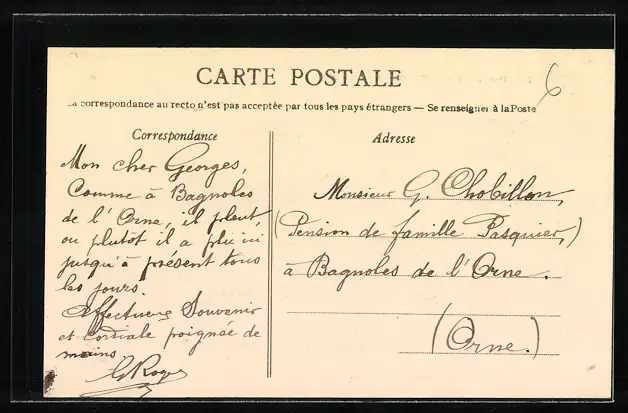 6
CARTE POSTALE
La correspondance au recto n'est pas acceptée par tous les pays étrangers — Se renseigner à la Poste
Correspondance
Mon cher Georges,
Comme à Bagnoles
de l'Orne, il pleut,
ou plutôt il a plu ici
jusqu'à présent tous
les jours.
Affectueux Souvenir
et cordiale poignée de
mains
G Roger
Adresse
Monsieur G. Chobillon,
(Pension de famille Pasquier,)
à Bagnoles de l'Orne.
(Orne.)